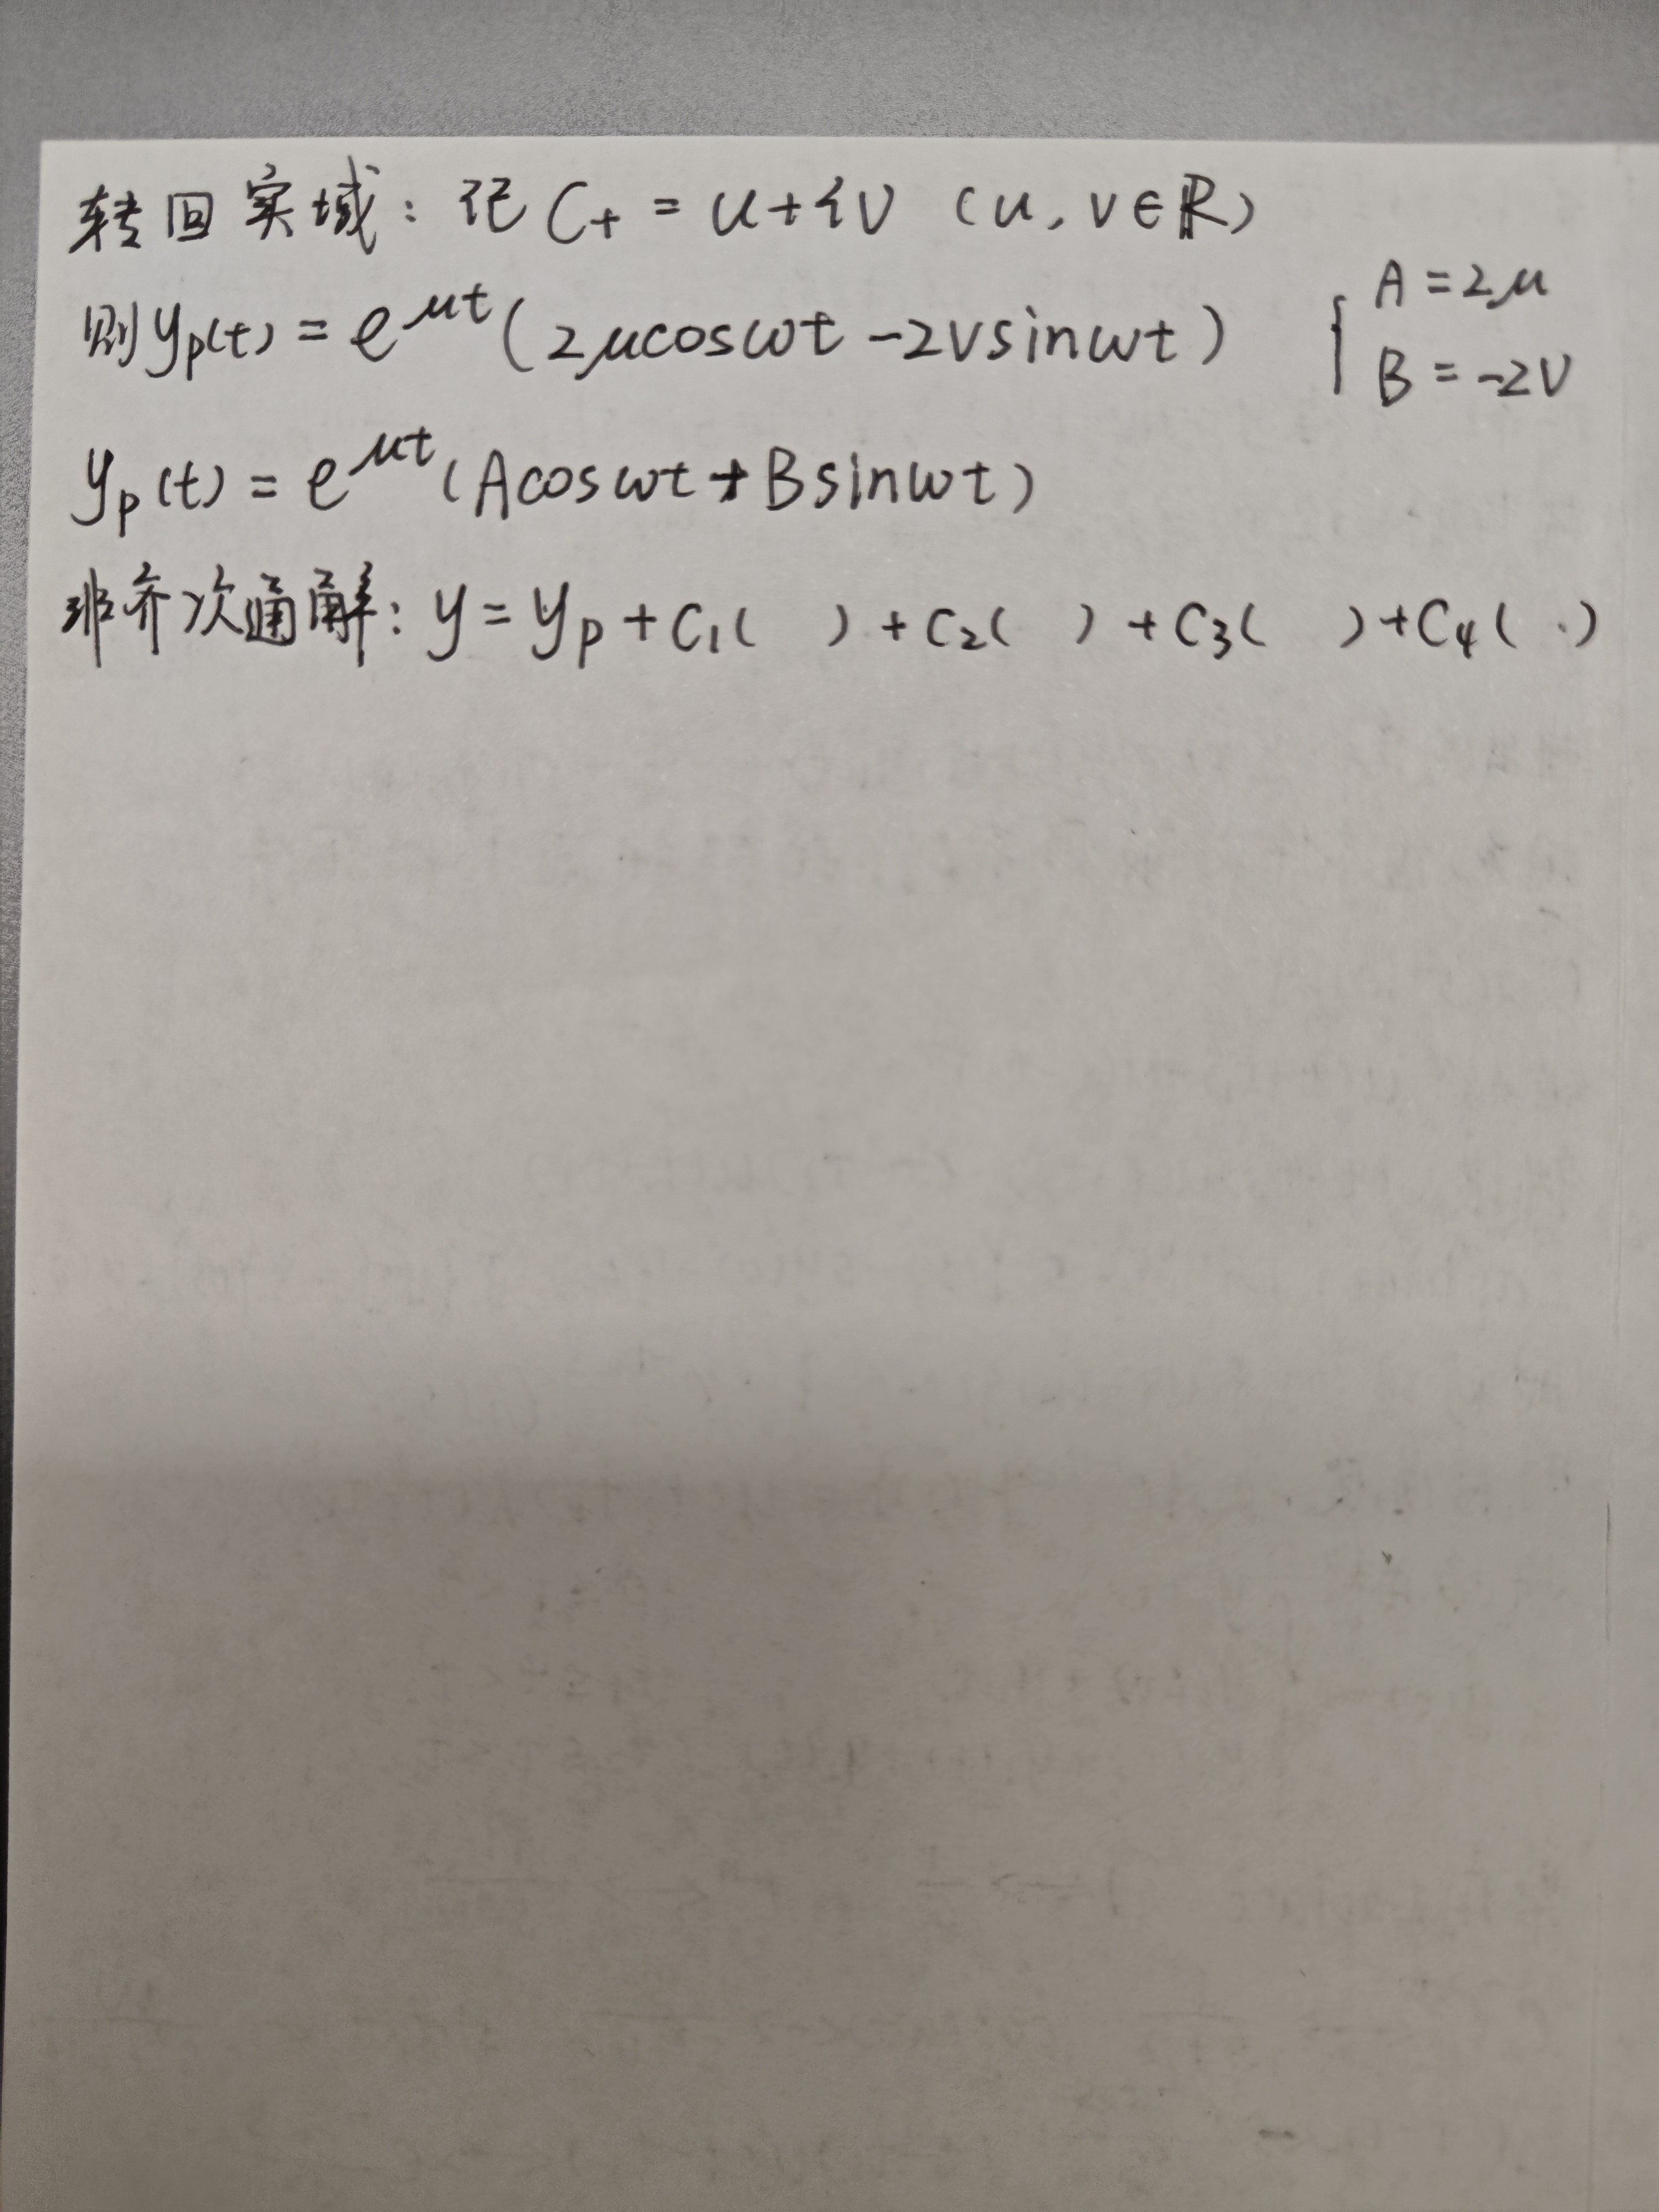 转回实域：记 C₊ = u+iv （u, v∈ℝ）
则 yₚ(t) = e^{μt}(2μcosωt -2vsinωt)
{ A = 2μ
B = -2v
yₚ(t) = e^{μt}(Acosωt + Bsinωt)
非齐次通解：y = yₚ + C₁( ) + C₂( ) + C₃( ) + C₄( )